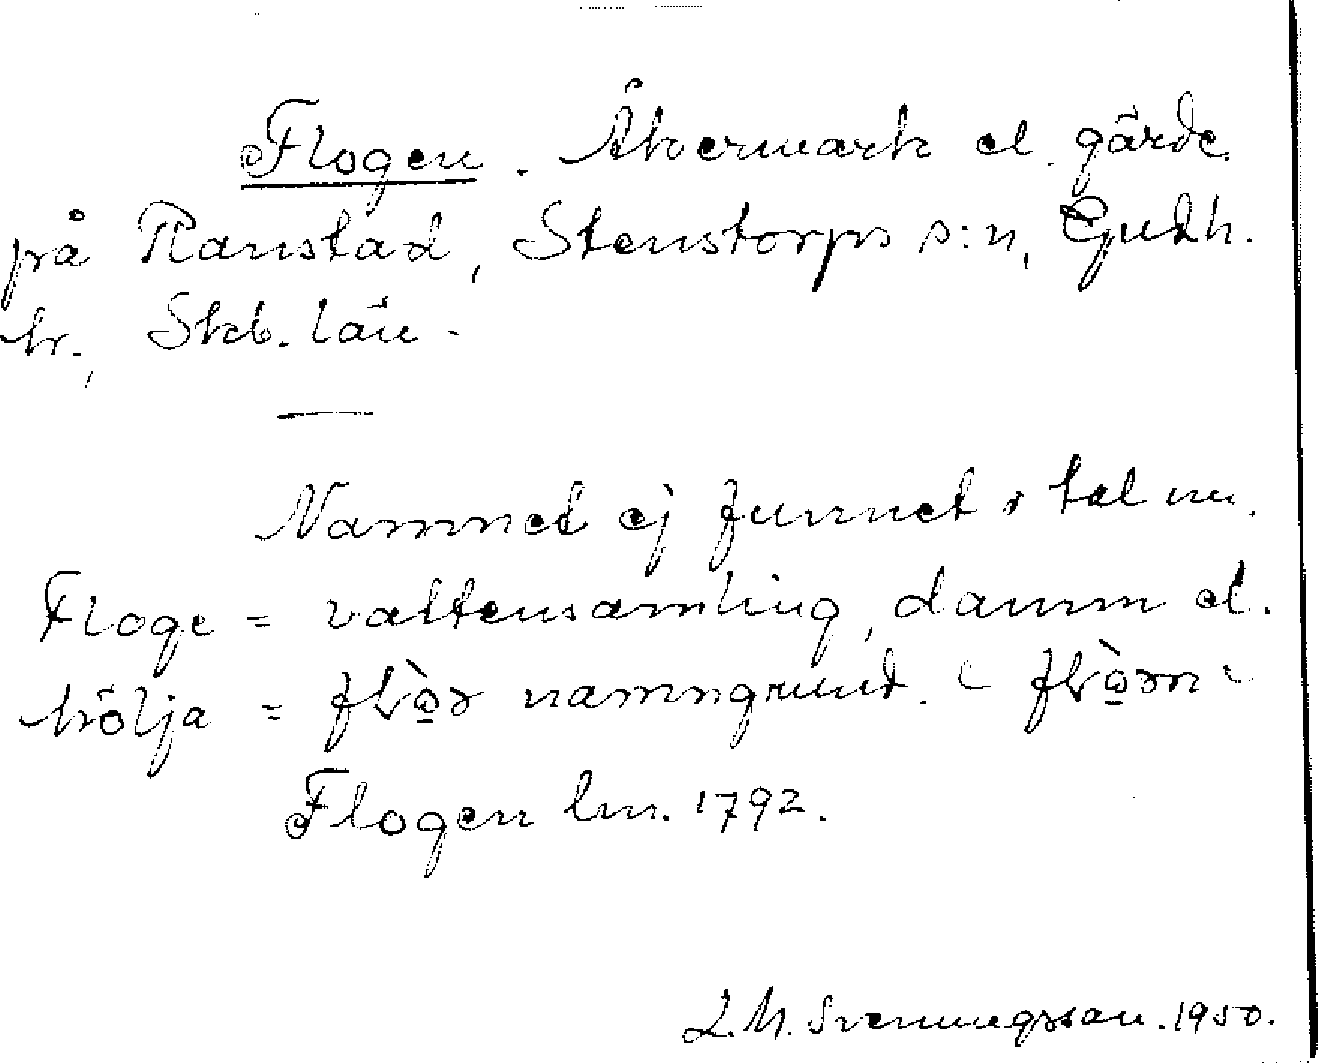 Flogen. Åkermark el. gärde
på Ranstad, Stenstorps s:n, Gudh.
hr., Skb. län.
Namnet ej funnet i tal nu.
Floge = vattensamling, damm el.
hölja = namngrund.
Flogen lm. 1792.
L.M. Svenungsson. 1950.